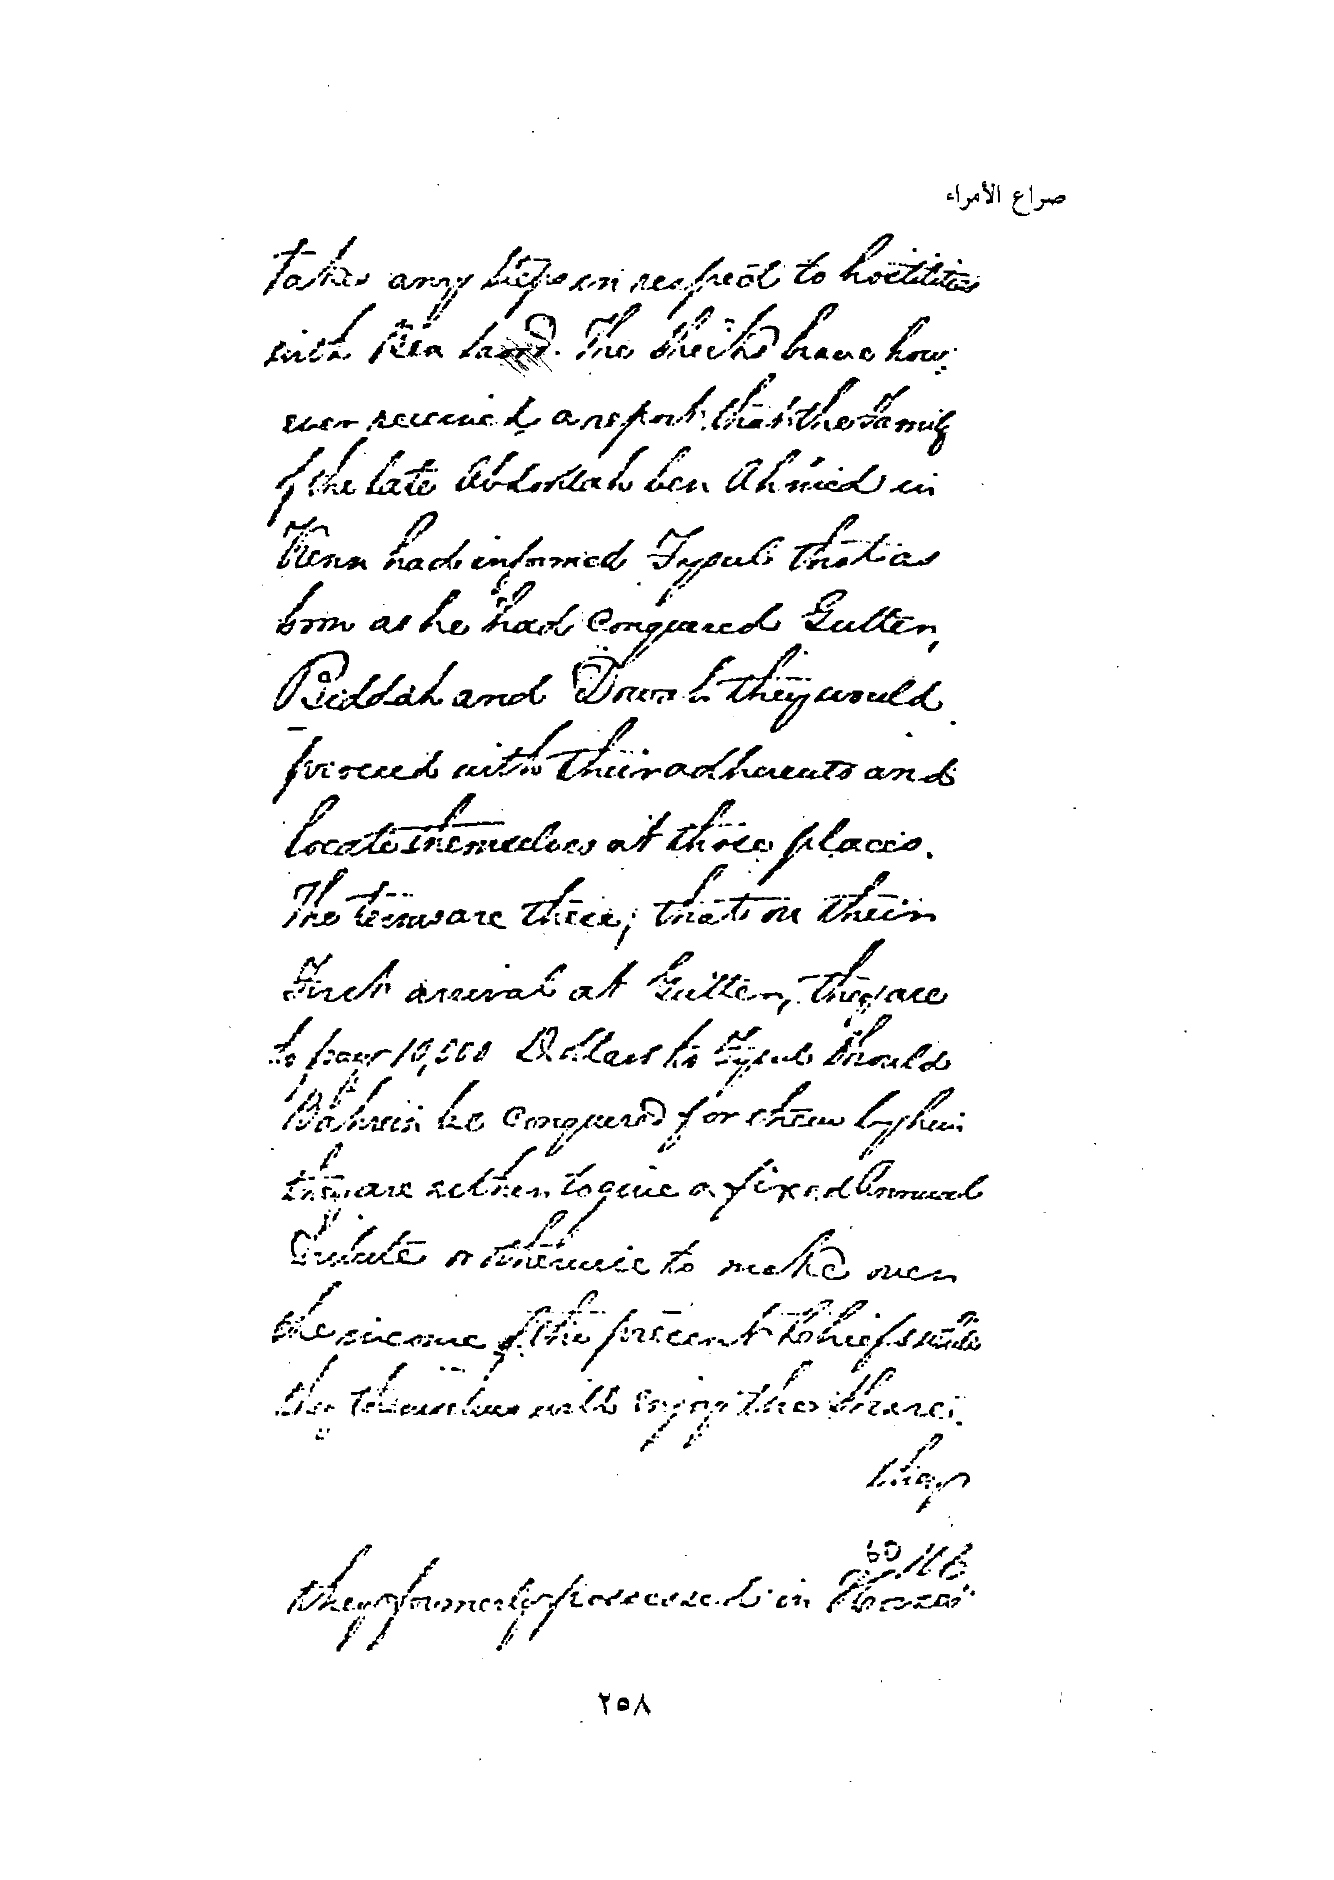 صراع الأمراء
take any steps in respect to hostilities
with Ben Saood. The Sheikhs have how-
ever received a report that the Family
of the late Abdollah ben Ahmed in
Kenn had informed Fysul that as
soon as he had conquered Gutter,
Biddah and they would
proceed with their adherents and
locate themselves at those places.
The terms are these; that on their
First arrival at Gutter, they are
to pay 10,000 Dollars to Fysul should
Bahrein be conquered for them by him
they are either to give a fixed Annual
Tribute or otherwise to make over
the income of the present Chiefs while
they themselves will enjoy the shares
they
60
they formerly possessed in
٢٥٨